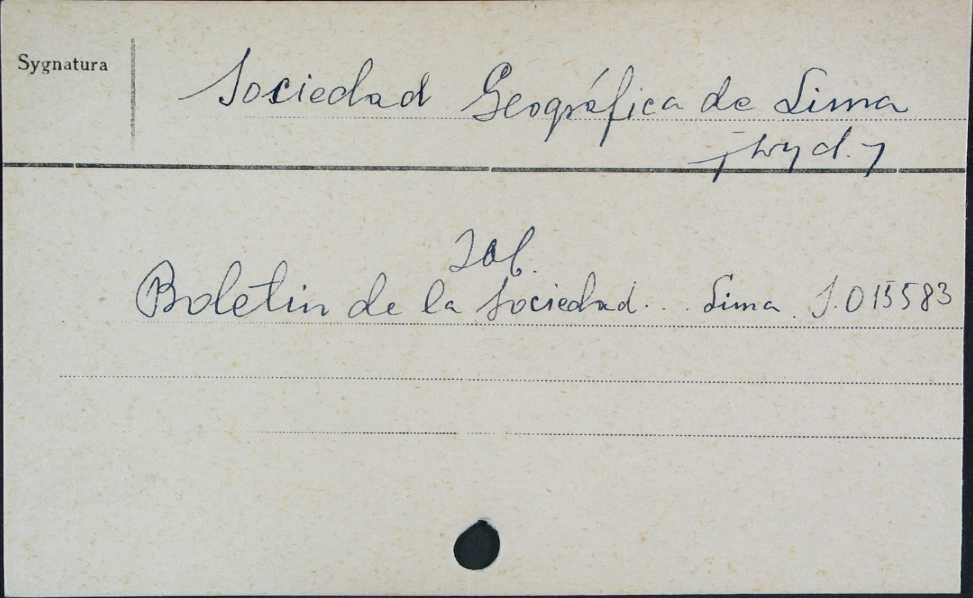 Sygnatura
Sociedad Geográfica de Lima
[wyd.]
Zob.
Boletin de la Sociedad... Lima. J.015583